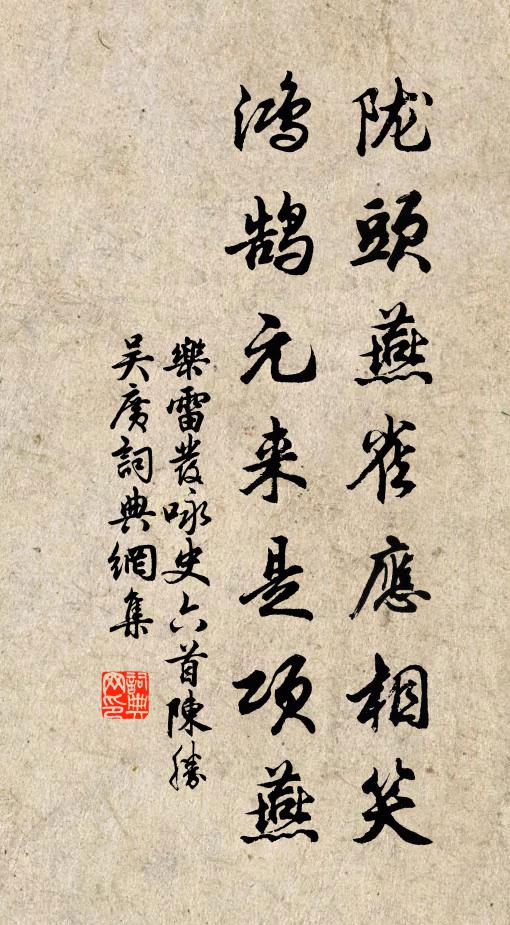 陇頭燕雀應相笑
鴻鹄元来是項燕
樂雷發咏史六首陳勝
吴廣詞典網集
詞典網印